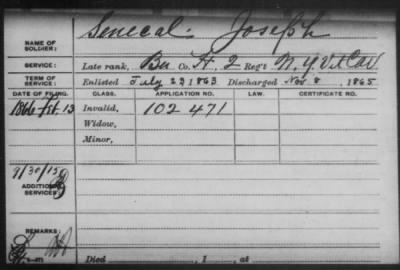 Senecal. Joseph
NAME OF SOLDIER:
SERVICE: Late rank, Co. H, 2 Reg't N.Y. Vet Cav
TERM OF SERVICE: Enlisted July 23 1863 Discharged Nov 8, 1865
DATE OF FILING. CLASS. APPLICATION NO. LAW. CERTIFICATE NO.
1866 Feb. 13 Invalid, 102 471
Widow,
Minor,
9/30/15
ADDITIONAL SERVICES:
REMARKS:
Died , 1 , at